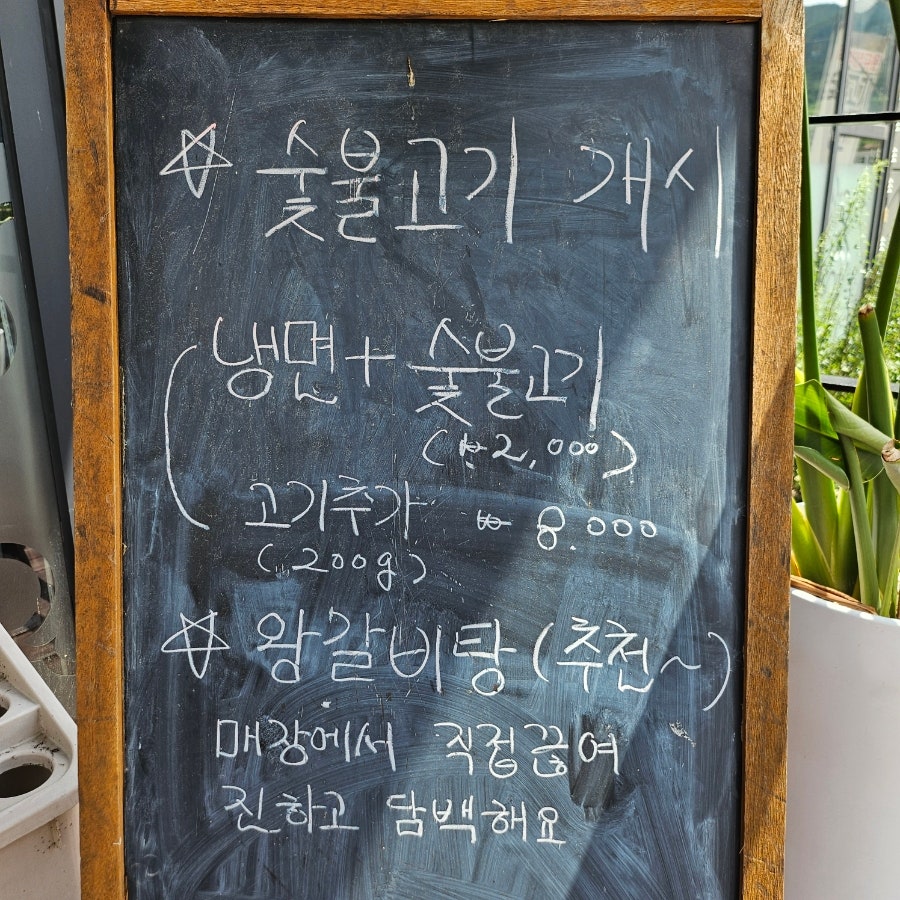 ☆ 숯불고기 개시
냉면 + 숯불고기
(₩2,000)
고기추가 ₩ 8.000
(200g)
☆ 왕갈비탕 (추천~)
매장에서 직접끓여
진하고 담백해요